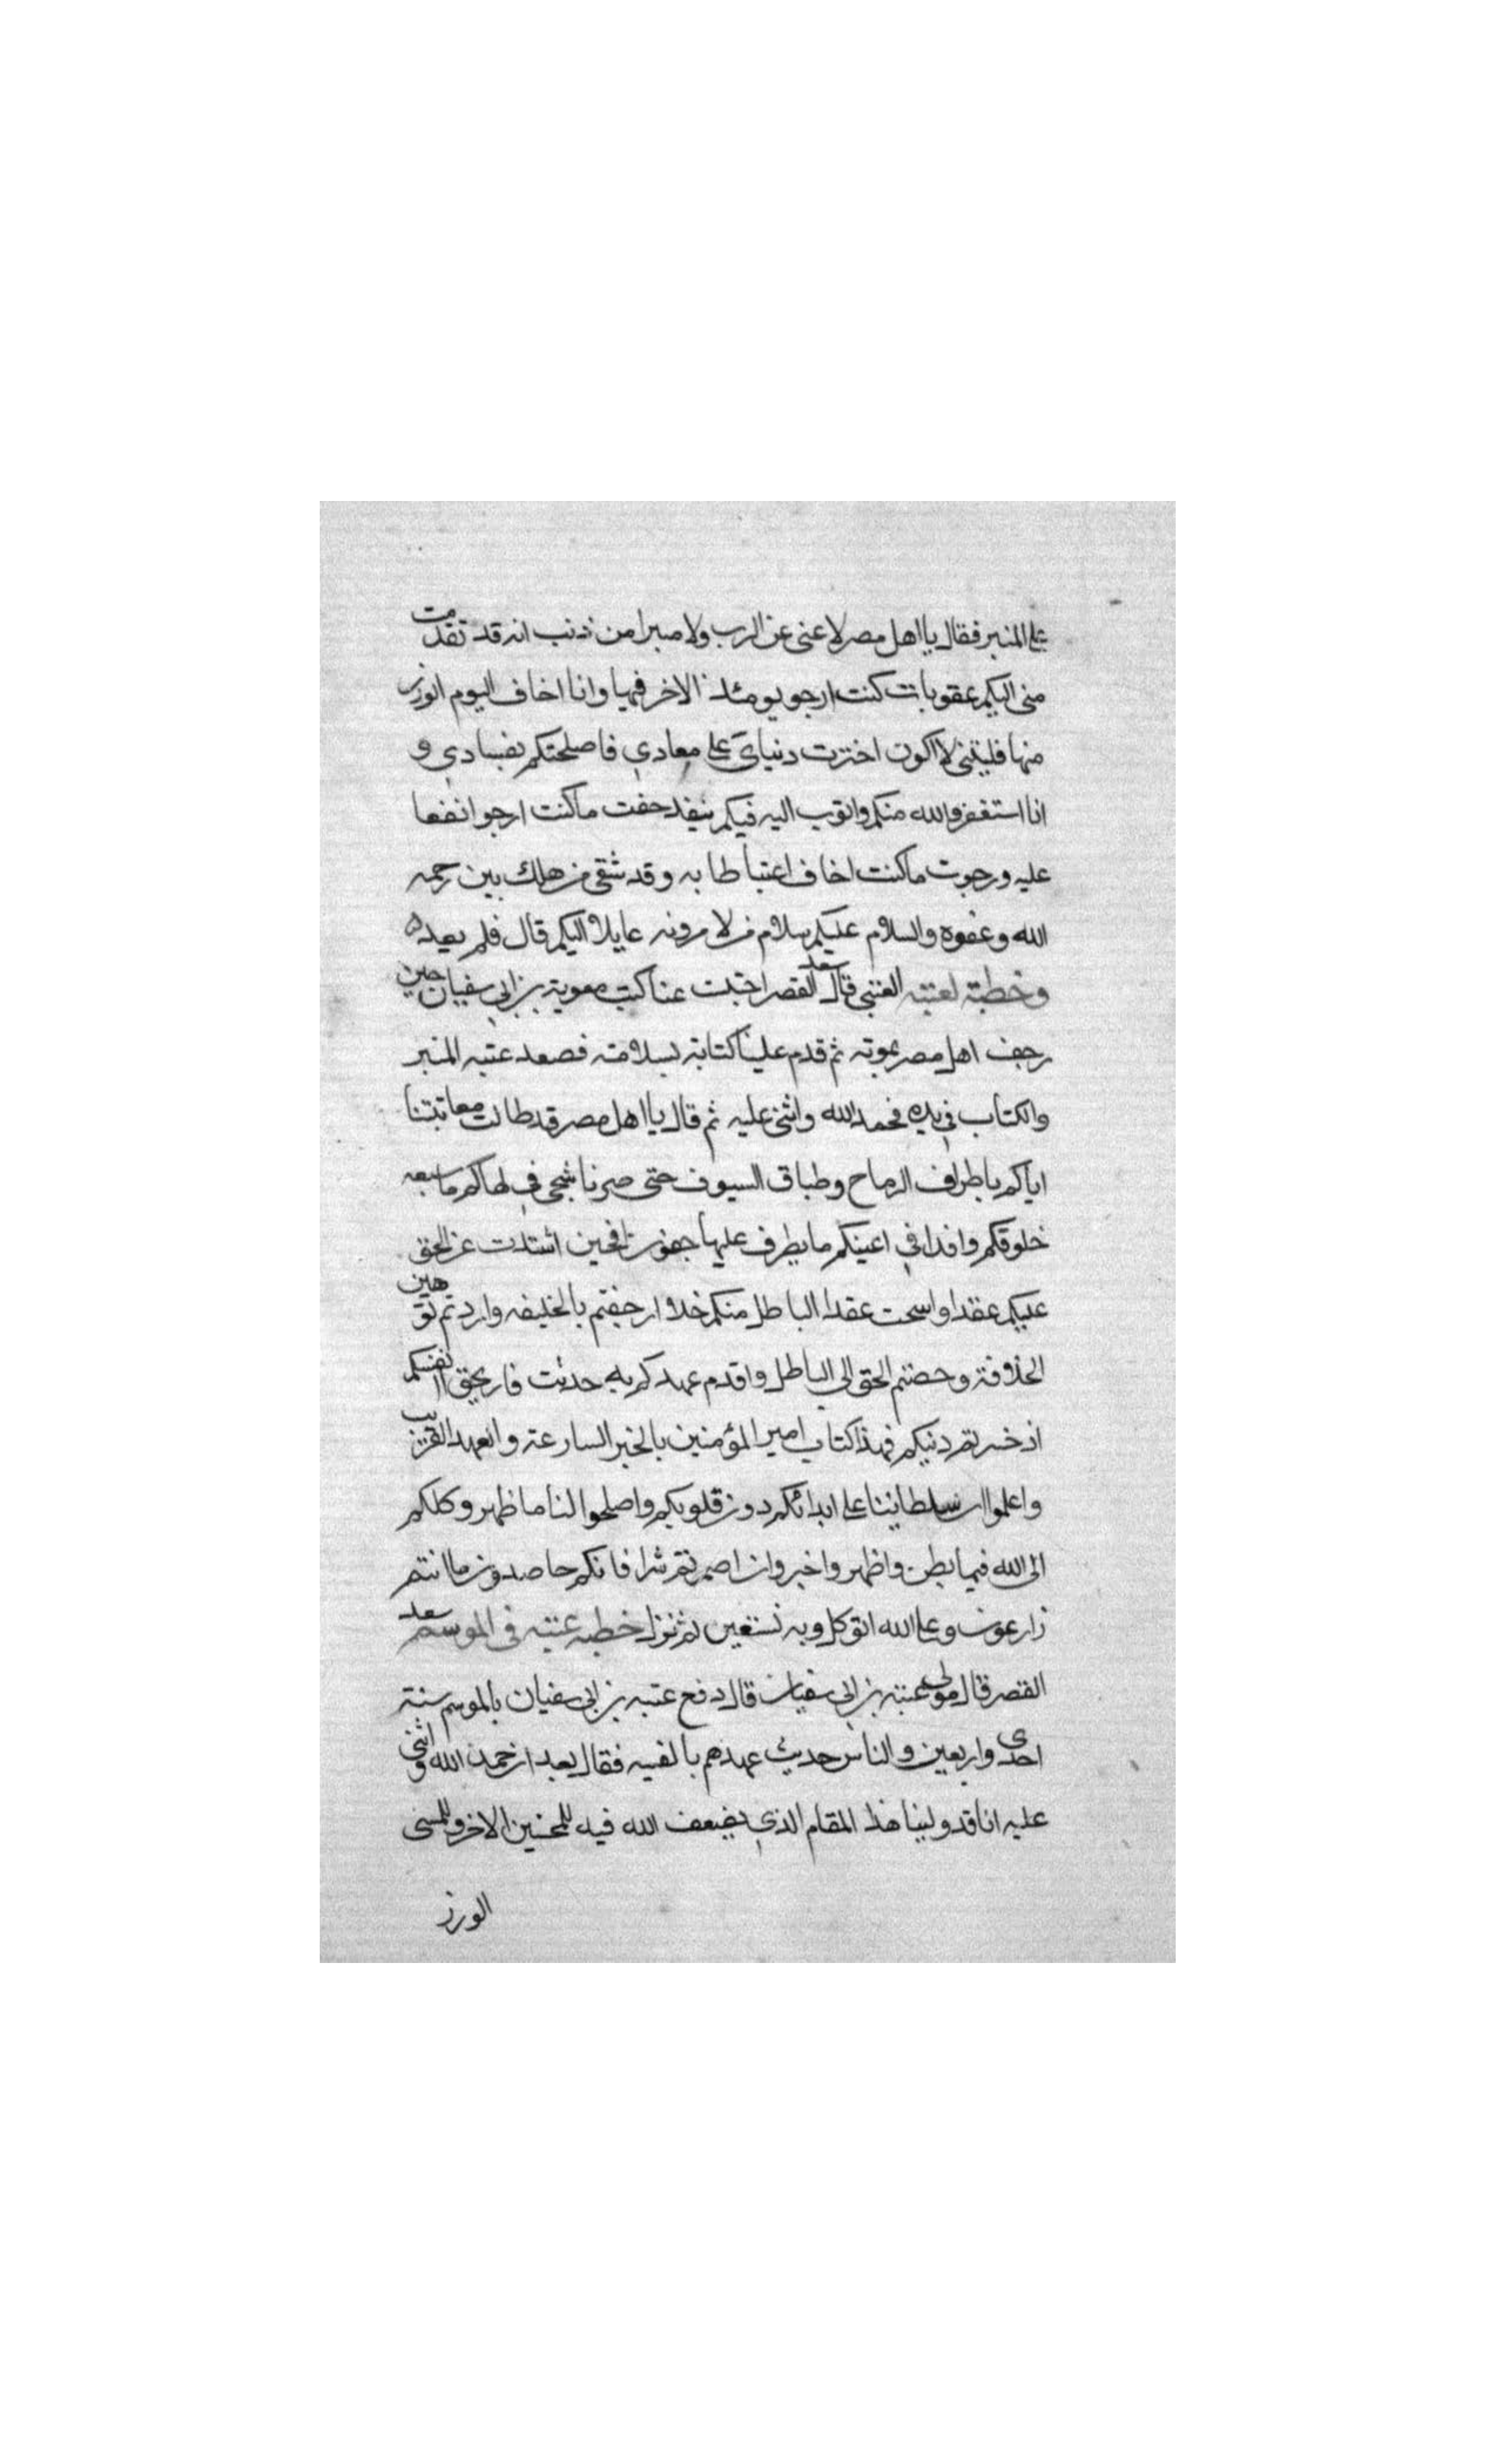 على المنبر فقال يا اهل مصر لا غنى عن الرب ولا مبرا من ذنب انه قد تقدمت
منى اليكم عقوبات كنت ارجو يومئذ الاخر فيها وانا اخاف اليوم الوزر
منها فليتنى لا اكون اخترت دنياى على معادي فاصلحتكم بفسادي و
انا استغفر الله منكم واتوب اليه فيكم فقد خفت ما كنت ارجو انفعا
عليه ورجوت ما كنت اخاف اغتباطا به وقد شقى من هلك بين رحمه
الله وعفوه والسلام عليكم سلام من لا مرونه عايلا اليكم قال فلم يعده
وخطبة لعتبه العتبى قال سعد القصر احتبت عنا كتب معوية بن ابى سفيان حين
رجف اهل مصر بموته ثم قدم علينا كتابة بسلامته فصعد عتبه المنبر
والكتاب في يده فحمد الله واثنى عليه ثم قال يا اهل مصر قد طالت معاتبتنا
اياكم باطراف الرماح وطباق السيوف حتى صرنا شجى في لهاكم ما سيعه
حلوقكم واقذا في اعينكم ما يطرف عليها جفون افحين اشتدت عن الحق
عليكم عقدا واسحت عقدا الباطل منكم خلا ارجفتم بالخليفه واردتم توهين
الخلافة وخضتم الحق الى الباطل واقدم عهدكم به حديث فاريحق انفسكم
اذ خسرتم دنيكم فهذا كتاب امير المؤمنين بالخبر السار عنه والعهد القريب
واعلموا ان سلطاننا على ابدانكم دون قلوبكم واصلحوا لنا ما ظهر وكلكم
الى الله فيما بطن واظهر واخبر وان اضمرتم شرا فانكم حاصدون ما انتم
زارعون وعلى الله اتوكل وبه نستعين ثم نزل خطبه عتبه في الموسم سعد
القصر قال مولى عتبه بن ابى سفيان قال دفع عتبه بن ابى سفيان بالموسم سنة
احدى واربعين والناس حديث عهدهم بالفتنه فقال بعد ان حمد الله واثنى
عليه انا قد ولينا هذا المقام الذي يضعف الله فيه للمحسنين الاخر وللمسى
الوزر